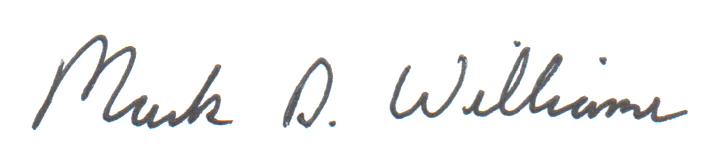 Mark D. Williams